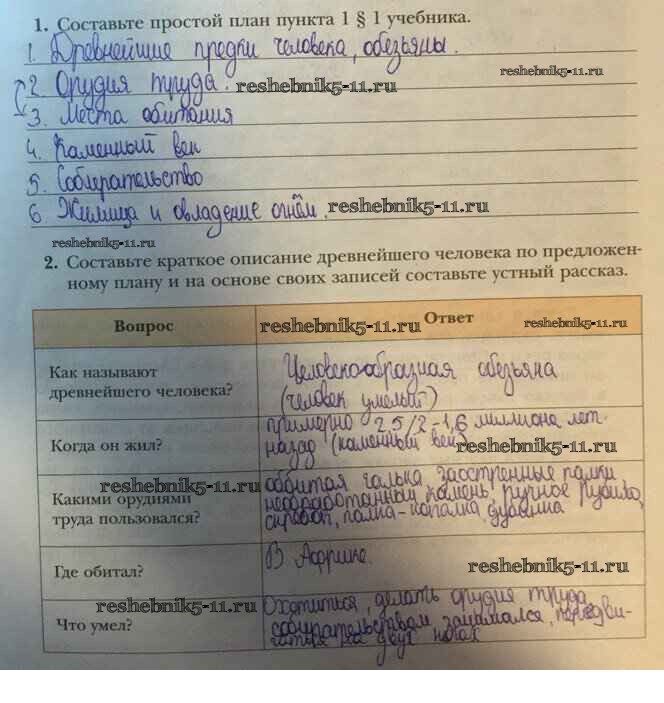 1. Составьте простой план пункта 1 § 1 учебника.
1. Древнейшие предки человека, обезьяны.
reshebnik5-11.ru
2. Орудия труда. reshebnik5-11.ru
3. Места обитания
4. Каменный век
5. Собирательство
6 Жилища и овладение огнём. reshebnik5-11.ru
reshebnik5-11.ru
2. Составьте краткое описание древнейшего человека по предложен-
ному плану и на основе своих записей составьте устный рассказ.
Вопрос reshebnik5-11.ru Ответ reshebnik5-11.ru
Как называют
древнейшего человека?
Человекообразная обезьяна
(человек умелый)
Когда он жил?
примерно 2,5/2-1,6 миллиона лет
назад (каменный век) reshebnik5-11.ru
reshebnik5-11.ru
Какими орудиями
труда пользовался?
оббитая галька заостренные палки
необработанный камень, ручное рубило,
скребок, палка-копалка, дубина
Где обитал?
В Африке.
reshebnik5-11.ru
reshebnik5-11.ru
Что умел?
Охотиться, делать орудия труда,
собирательством занимался, передви-
гаться на двух ногах